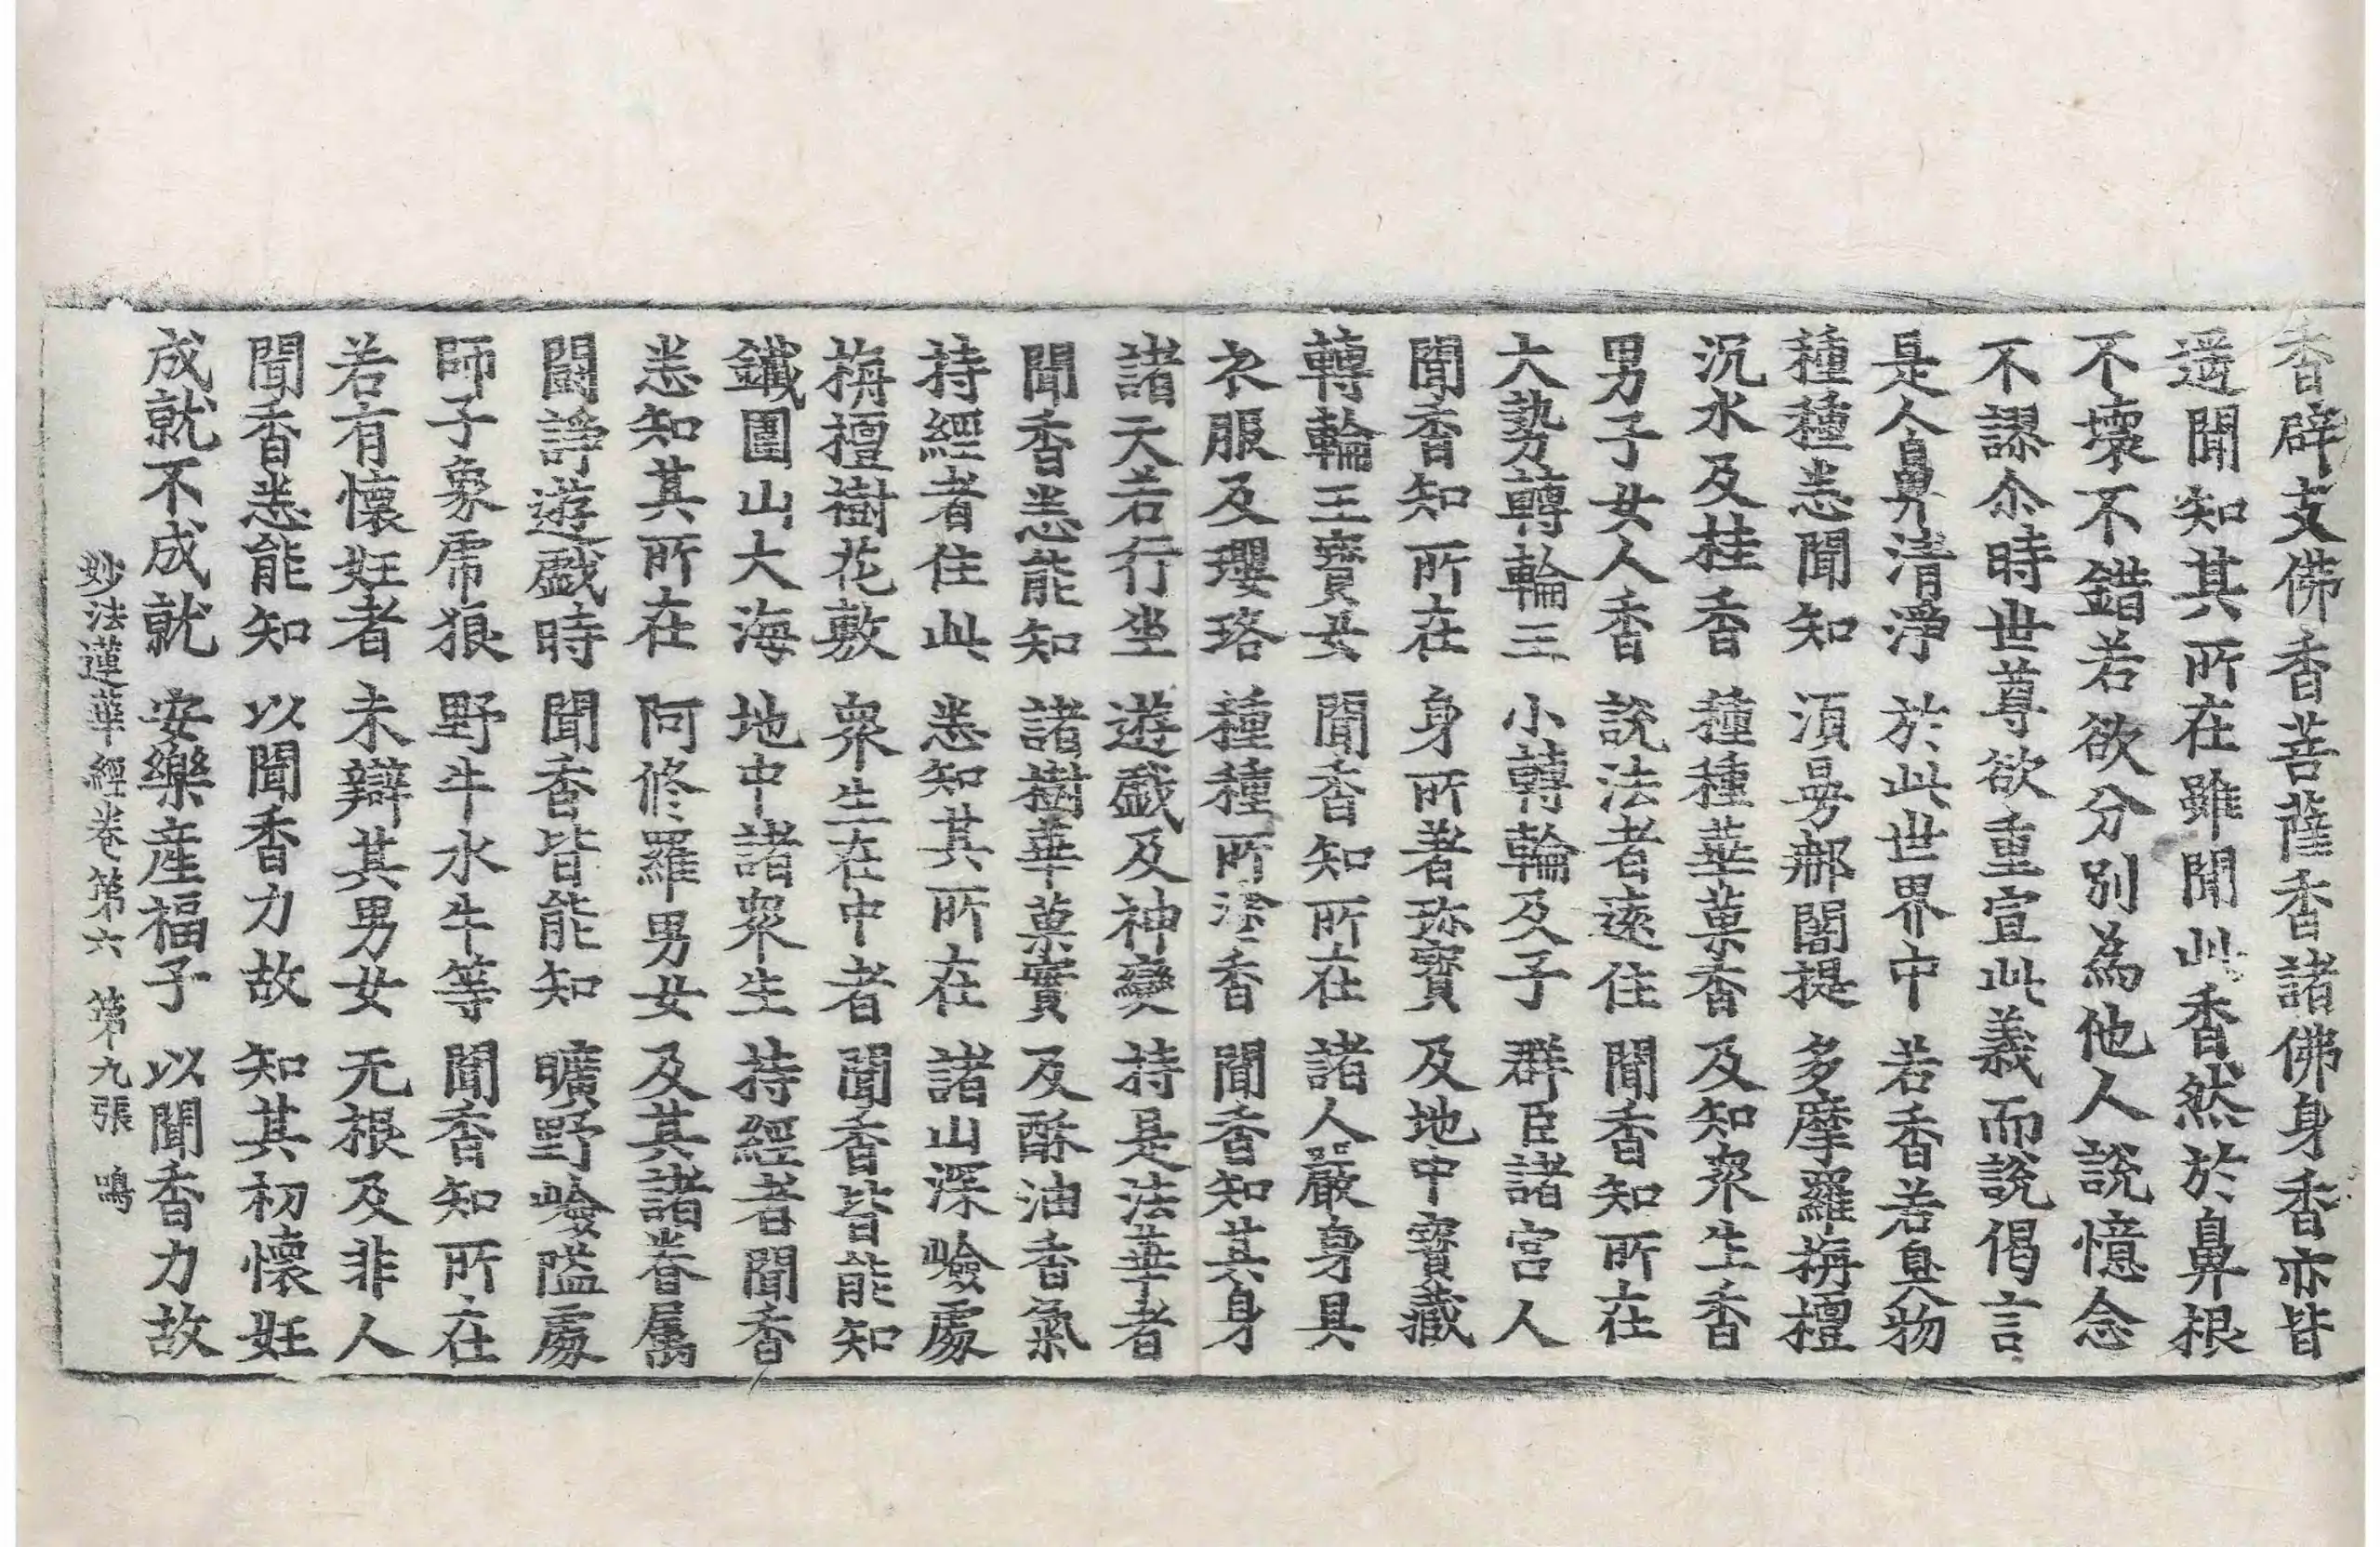 香辟支佛香菩薩香諸佛身香亦皆
遥聞知其所在雖聞此香然於鼻根
不壞不錯若欲分別為他人說憶念
不謬尒時世尊欲重宣此義而說偈言
是人鼻清淨 於此世界中 若香若臭物
種種悉聞知 湏曼那闍提 多摩羅栴檀
沉水及桂香 種種華菓香 及知衆生香
男子女人香 說法者遠住 聞香知所在
大勢轉輪王 小轉輪及子 群臣諸宮人
聞香知所在 身所著珎寶 及地中寶藏
轉輪王寶女 聞香知所在 諸人嚴身具
衣服及瓔珞 種種所塗香 聞香知其身
諸天若行坐 遊戲及神變 持是法華者
聞香悉能知 諸樹華菓實 及酥油香氣
持經者住此 悉知其所在 諸山深嶮處
栴檀樹花敷 衆生在中者 聞香皆能知
鐵圍山大海 地中諸衆生 持經者聞香
悉知其所在 阿修羅男女 及其諸眷屬
鬪諍遊戲時 聞香皆能知 曠野嶮隘處
師子象虎狼 野牛水牛等 聞香知所在
若有懷妊者 未辯其男女 无根及非人
聞香悉能知 以聞香力故 知其初懷妊
成就不成就 安樂産福子 以聞香力故
妙法蓮華經卷第六 第九張 鳴